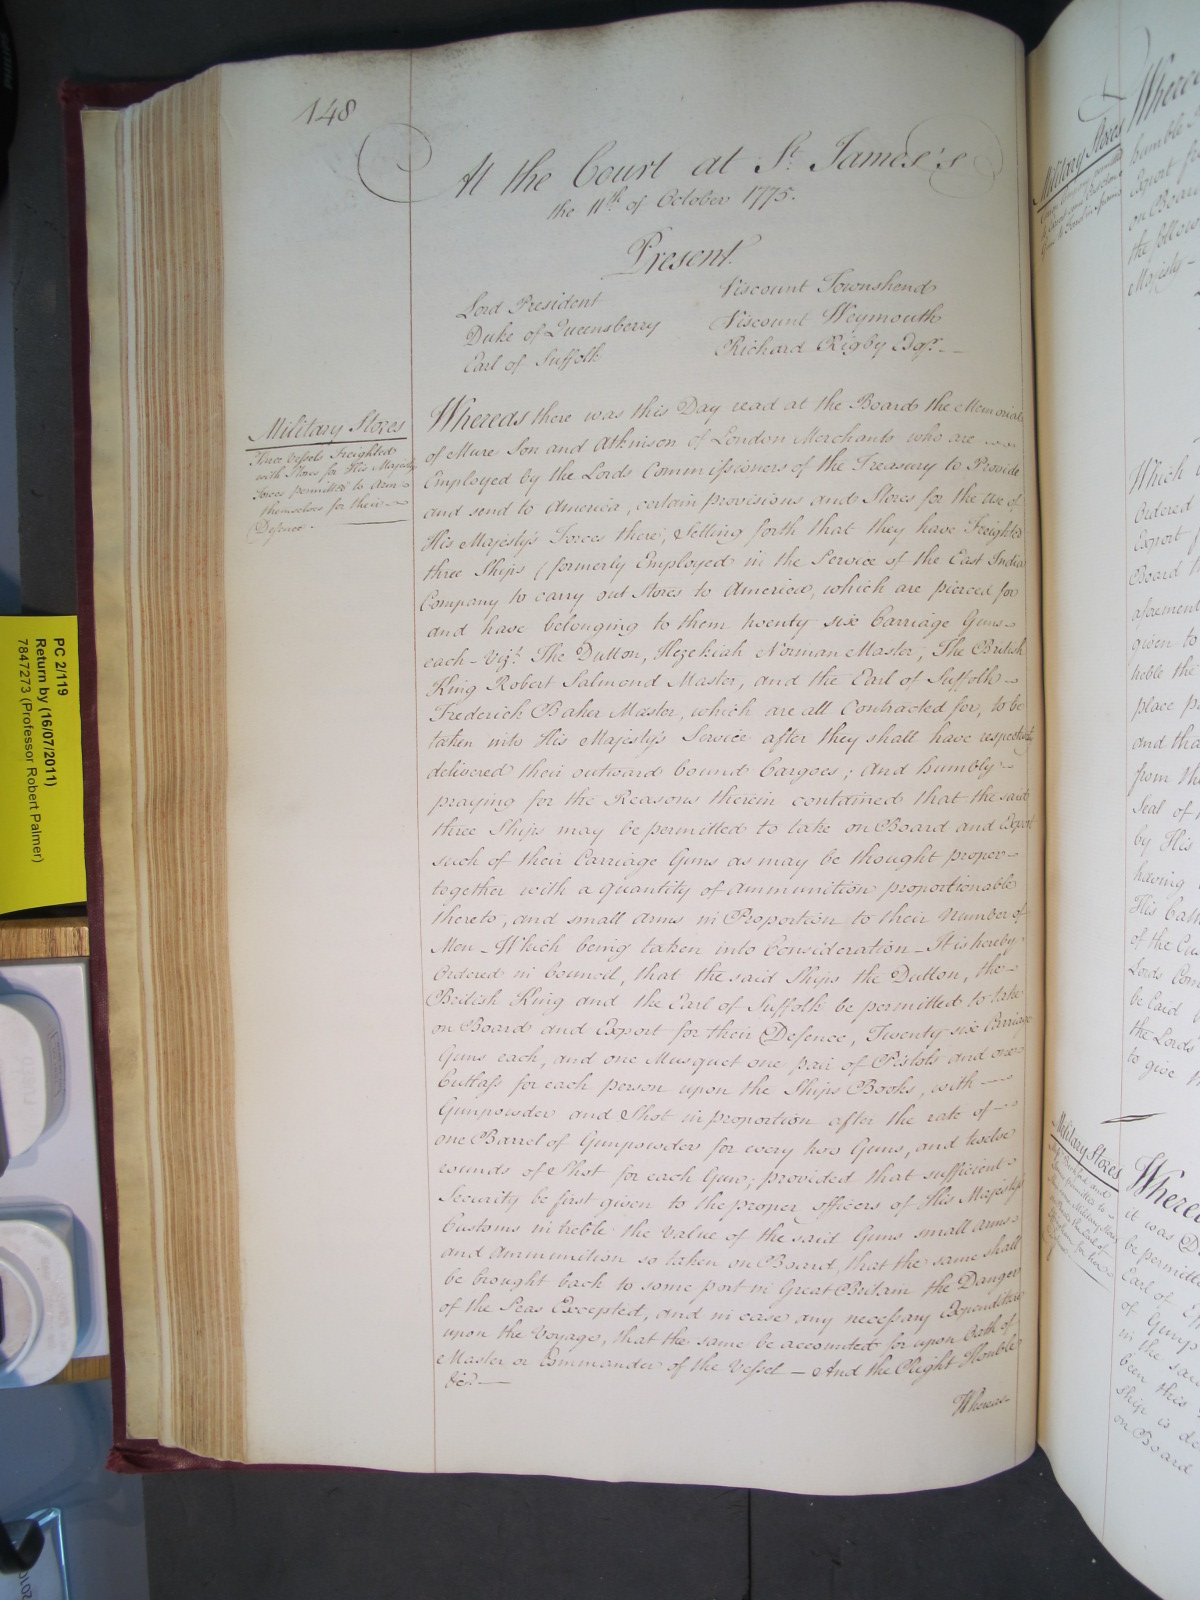 148
At the Court at St. James's
the 11th of October 1775.
Present
Lord President
Duke of Queensberry
Earl of Suffolk
Viscount Townshend
Viscount Weymouth
Richard Rigby Esqr.
Military Stores
Three Vessels Freighted
with Stores for His Majestys
Forces permitted to Arm
themselves for their
Defence.
Whereas there was this Day read at the Board the Memorial
of Mure Son and Atkinson of London Merchants who are
Employed by the Lords Commissioners of the Treasury to Provide
and send to America, certain provisions and Stores for the use of
His Majesty's Forces there; Setting forth that they have Freighted
three Ships (formerly Employed in the Service of the East India
Company to carry out Stores to America, which are pierced for
and have belonging to them twenty six Carriage Guns
each - Vizt. The Dutton, Hezekiah Norman Master; The British
King Robert Salmond Master, and the Earl of Suffolk
Frederick Baker Master, which are all Contracted for, to be
taken into His Majesty's Service after they shall have respectively
delivered their outward bound Cargoes; And humbly
praying for the Reasons therein contained that the said
three Ships may be permitted to take on Board and Export
such of their Carriage Guns as may be thought proper
together with a quantity of Ammunition proportionable
thereto, and small Arms in Proportion to their Number of
Men - Which being taken into Consideration - It is hereby
Ordered in Council, that the said Ships the Dutton, the
British King and the Earl of Suffolk be permitted to take
on Board and Export for their Defence, Twenty six Carriage
Guns each, and one Musquet one pair of Pistols and one
Cutlass for each person upon the Ships Books, with
Gunpowder and Shot in proportion after the rate of
one Barrel of Gunpowder for every two Guns, and twelve
rounds of Shot for each Gun; provided that sufficient
Security be first given to the proper officers of His Majesty's
Customs in treble the Value of the said Guns small Arms
and Ammunition so taken on Board, that the same shall
be brought back to some port in Great Britain the Danger
of the Seas Excepted, and in case any necessary Expenditure
upon the Voyage, that the same be accounted for upon Oath of
Master or Commander of the Vessel - And the Right Honble
&ca
Whereas
PC 2/119
Return by (16/07/2011)
7847273 (Professor Robert Palmer)
Military Stores
Whereas
humble
Export for
on Board
the follow
Majesty
Which
Ordered
Export
Board
given to
treble the
place
and tha
from the
Seal of
by His
having
of the Cus
Lords Com
be laid
the Lords
to give
Military Stores
Where
it was
be permitte
Earl of
of Gunp
in the sa
been this
Ship is de
on Board